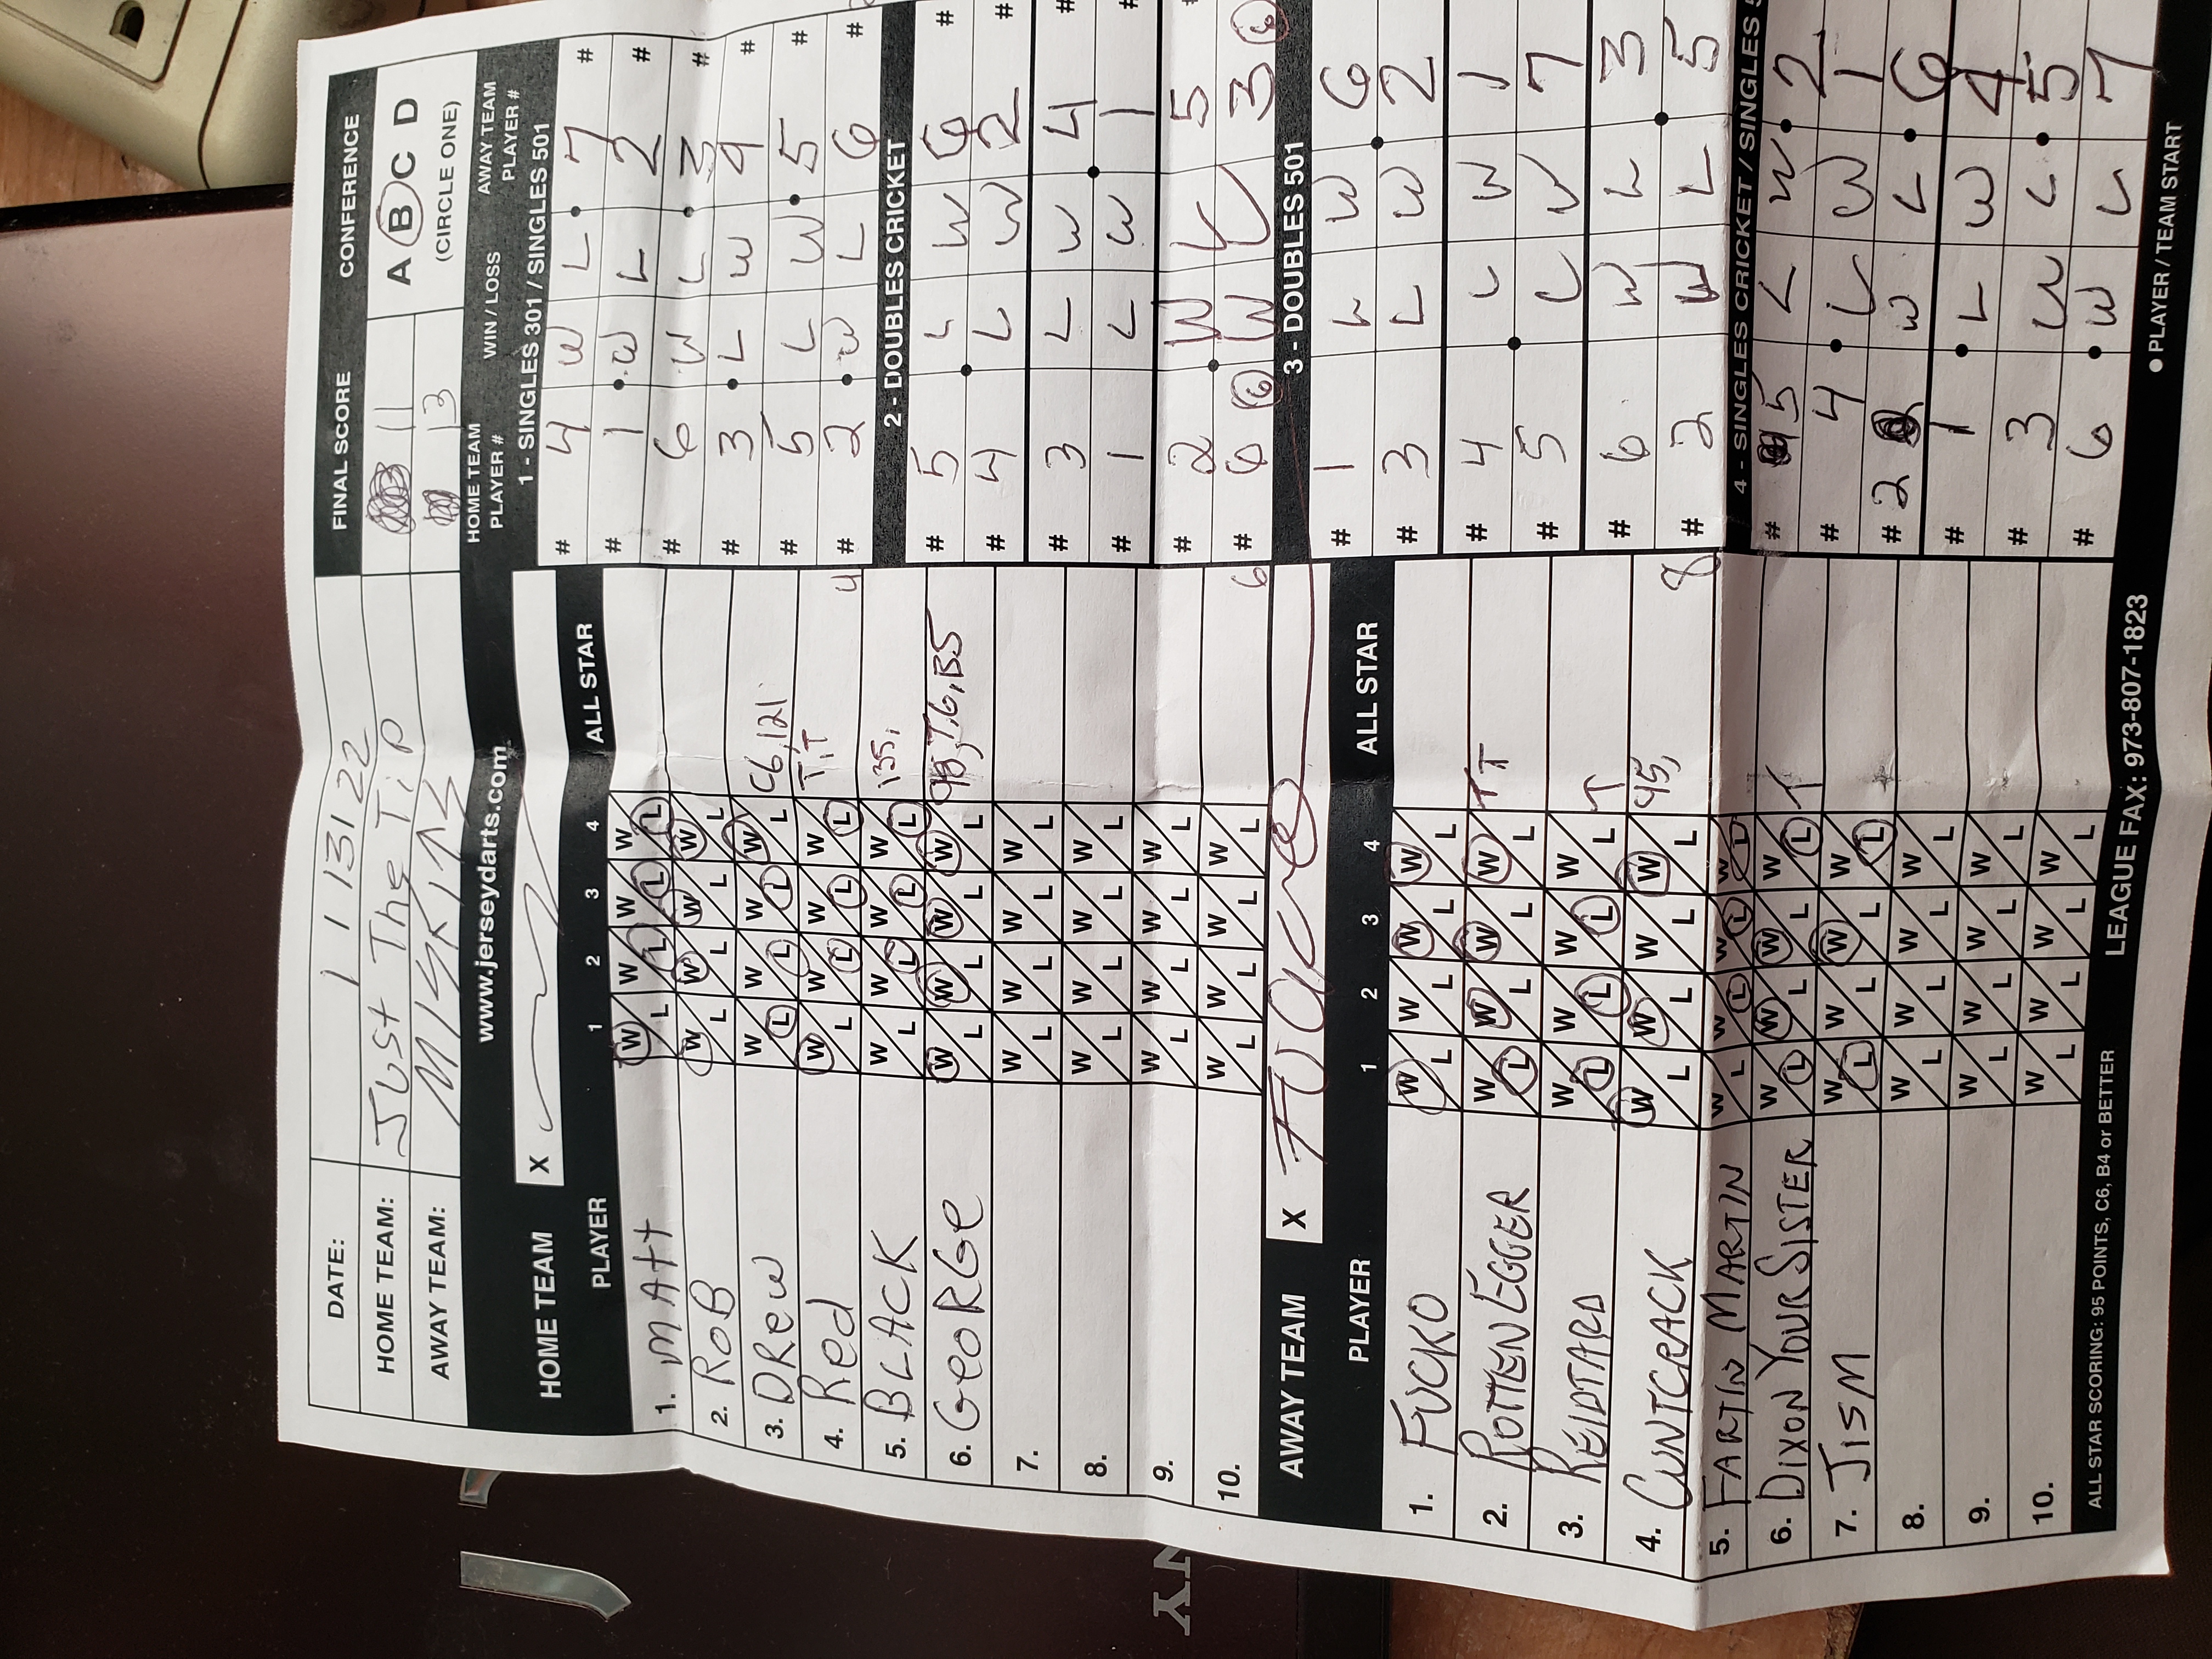 DATE: 1 1 13 1 22
FINAL SCORE
CONFERENCE
HOME TEAM: Just The Tip
11
A B C D
AWAY TEAM: MISFITS
13
(CIRCLE ONE)
www.jerseydarts.com
HOME TEAM PLAYER #
WIN / LOSS
AWAY TEAM PLAYER #
HOME TEAM X
1 - SINGLES 301 / SINGLES 501
# 4 W L 7 #
# 1 W L 2 #
# 6 W L 3 #
# 3 L W 4 #
# 5 L W 5 #
# 2 W L 6 #
2 - DOUBLES CRICKET
# 5 L W 6 #
# 4 L W 2 #
# 3 L W 4 #
# 1 L W 1 #
# 2 W L 5 #
# 6 6 W L 3 6
3 - DOUBLES 501
# 1 L W 6
# 3 L W 2
# 4 L W 1
# 5 L W 7
# 6 W L 3
# 2 W L 5
4 - SINGLES CRICKET / SINGLES 5
# 5 L W 2
# 4 L W 1
# 2 W L 6
# 1 L W 4
# 3 W L 5
# 6 W L 7
PLAYER / TEAM START
PLAYER 1 2 3 4 ALL STAR
1. MAtt W L W L W L W L
2. RoB W L W L W L W L
3. DRew W L W L W L W L C6,121
4. Red W L W L W L W L T,T 4
5. BLACK W L W L W L W L 135,
6. GeoRGe W L W L W L W L 98,T,6,B5
7. W L W L W L W L
8. W L W L W L W L
9. W L W L W L W L
10. W L W L W L W L 6
AWAY TEAM X
PLAYER 1 2 3 4 ALL STAR
1. FUCKO W L W L W L W L
2. ROTTEN EGGER W L W L W L W L TT
3. REIDTARD W L W L W L W L T
4. CUNTCRACK W L W L W L W L 95, 8
5. FARTIN MARTIN W L W L W L W L
6. DIXON YOUR SISTER W L W L W L W L T
7. JISM W L W L W L W L
8. W L W L W L W L
9. W L W L W L W L
10. W L W L W L W L
ALL STAR SCORING: 95 POINTS, C6, B4 or BETTER
LEAGUE FAX: 973-807-1823
NY